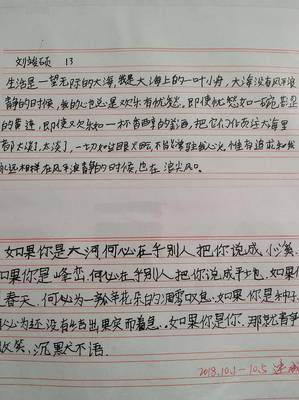 刘峻硕 13
生活是一望无际的大海,我是大海上的一叶小舟,大海没有风平浪
静的时候,我的心也总是欢乐有忧愁。即使忧愁如一碗苦涩
的黄连,即使欢乐如一杯香醇的美酒,把它们作在大海里
都太淡了,太淡了,一切如过眼
永远相伴在风平浪静的时候,也在浪尖风口。
如果你是大河,何必在乎别人把你说成小溪
如果你是峰峦,何必在乎别人把你说成平土包,如果你
春天,何必为一朵年花朵的凋零叹息,如果你是种子
何必为还没有结出果实而着急..如果你是你,那就静静
微笑,沉默不语。
2018.10.1-10.5